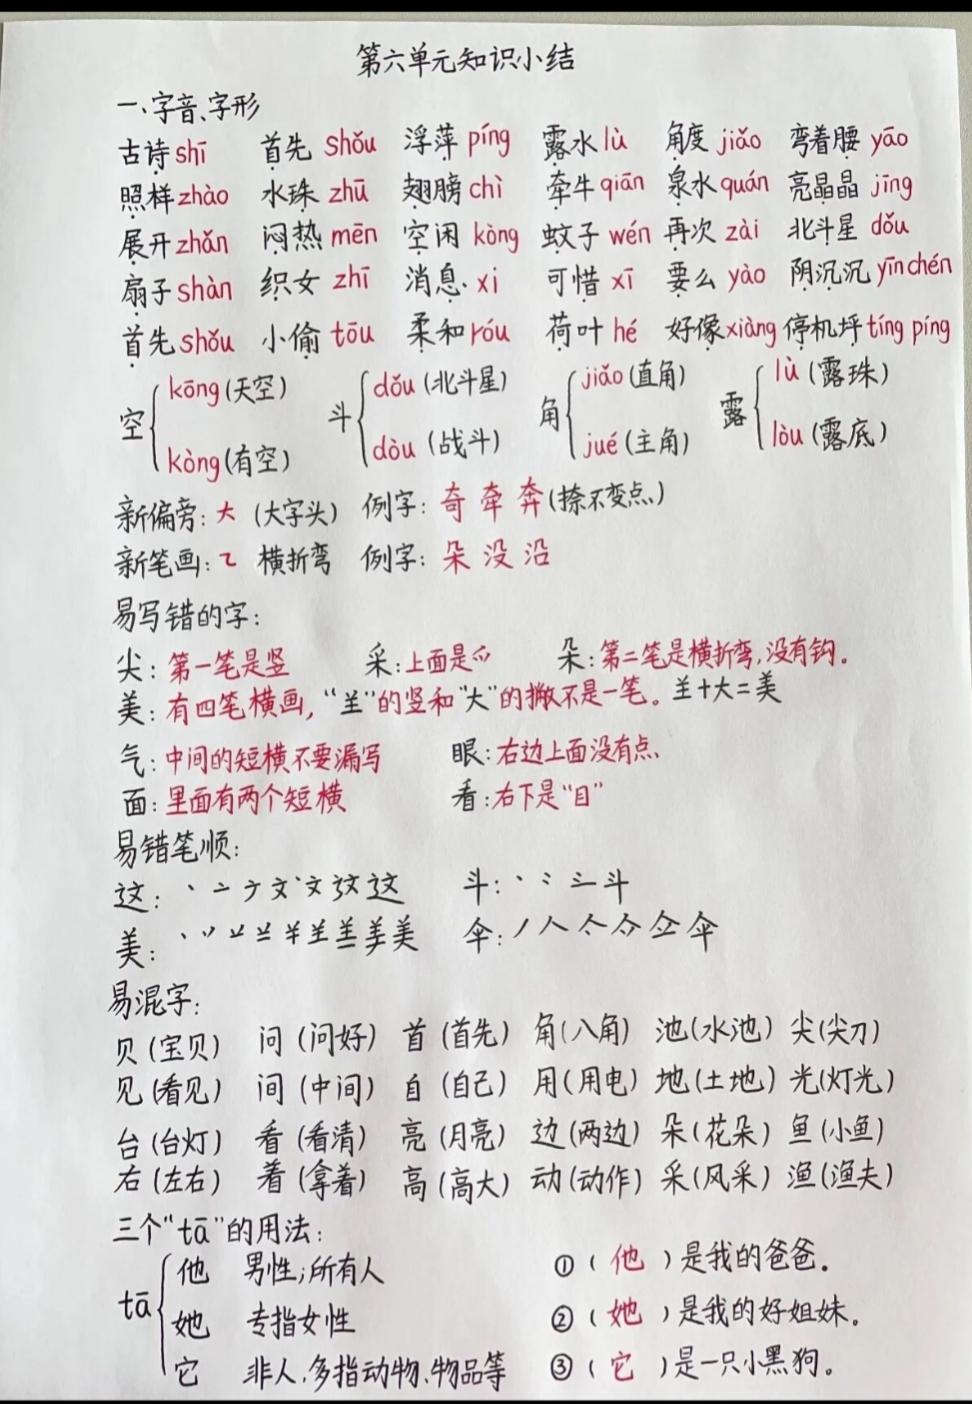 第六单元知识小结
一、字音、字形
古诗shī 首先shǒu 浮萍píng 露水lù 角度jiǎo 弯着腰yāo
照样zhào 水珠zhū 翅膀chì 牵牛qiān 泉水quán 亮晶晶jīng
展开zhǎn 闷热mēn 空闲kòng 蚊子wén 再次zài 北斗星dǒu
扇子shàn 织女zhī 消息xi 可惜xī 要么yào 阴沉沉yīnchén
首先shǒu 小偷tōu 柔和róu 荷叶hé 好像xiàng 停机坪tíng píng
空 kōng(天空) 斗 dǒu(北斗星) 角 jiǎo(直角) 露 lù(露珠)
kòng(有空) dòu(战斗) jué(主角) lòu(露底)
新偏旁:大(大字头) 例字:奇 牵 奔(捺不变点)
新笔画:㇍ 横折弯 例字:朵 没 沿
易写错的字:
尖:第一笔是竖 采:上面是爫 朵:第二笔是横折弯,没有钩。
美:有四笔横画,“𦍌”的竖和“大”的撇不是一笔。𦍌+大=美
气:中间的短横不要漏写 眼:右边上面没有点、
面:里面有两个短横 看:右下是“目”
易错笔顺:
这: 丶 亠 ナ 文 文 这 这 斗: 丶 斗
美: 丶 丷 美 伞: 丿 人 伞
易混字:
贝(宝贝) 问(问好) 首(首先) 角(八角) 池(水池) 尖(尖刀)
见(看见) 间(中间) 自(自己) 用(用电) 地(土地) 光(灯光)
台(台灯) 看(看清) 亮(月亮) 边(两边) 朵(花朵) 鱼(小鱼)
右(左右) 着(拿着) 高(高大) 动(动作) 采(风采) 渔(渔夫)
三个“tā”的用法:
tā 他 男性;所有人 ①(他)是我的爸爸。
她 专指女性 ②(她)是我的好姐妹。
它 非人,多指动物、物品等 ③(它)是一只小黑狗。